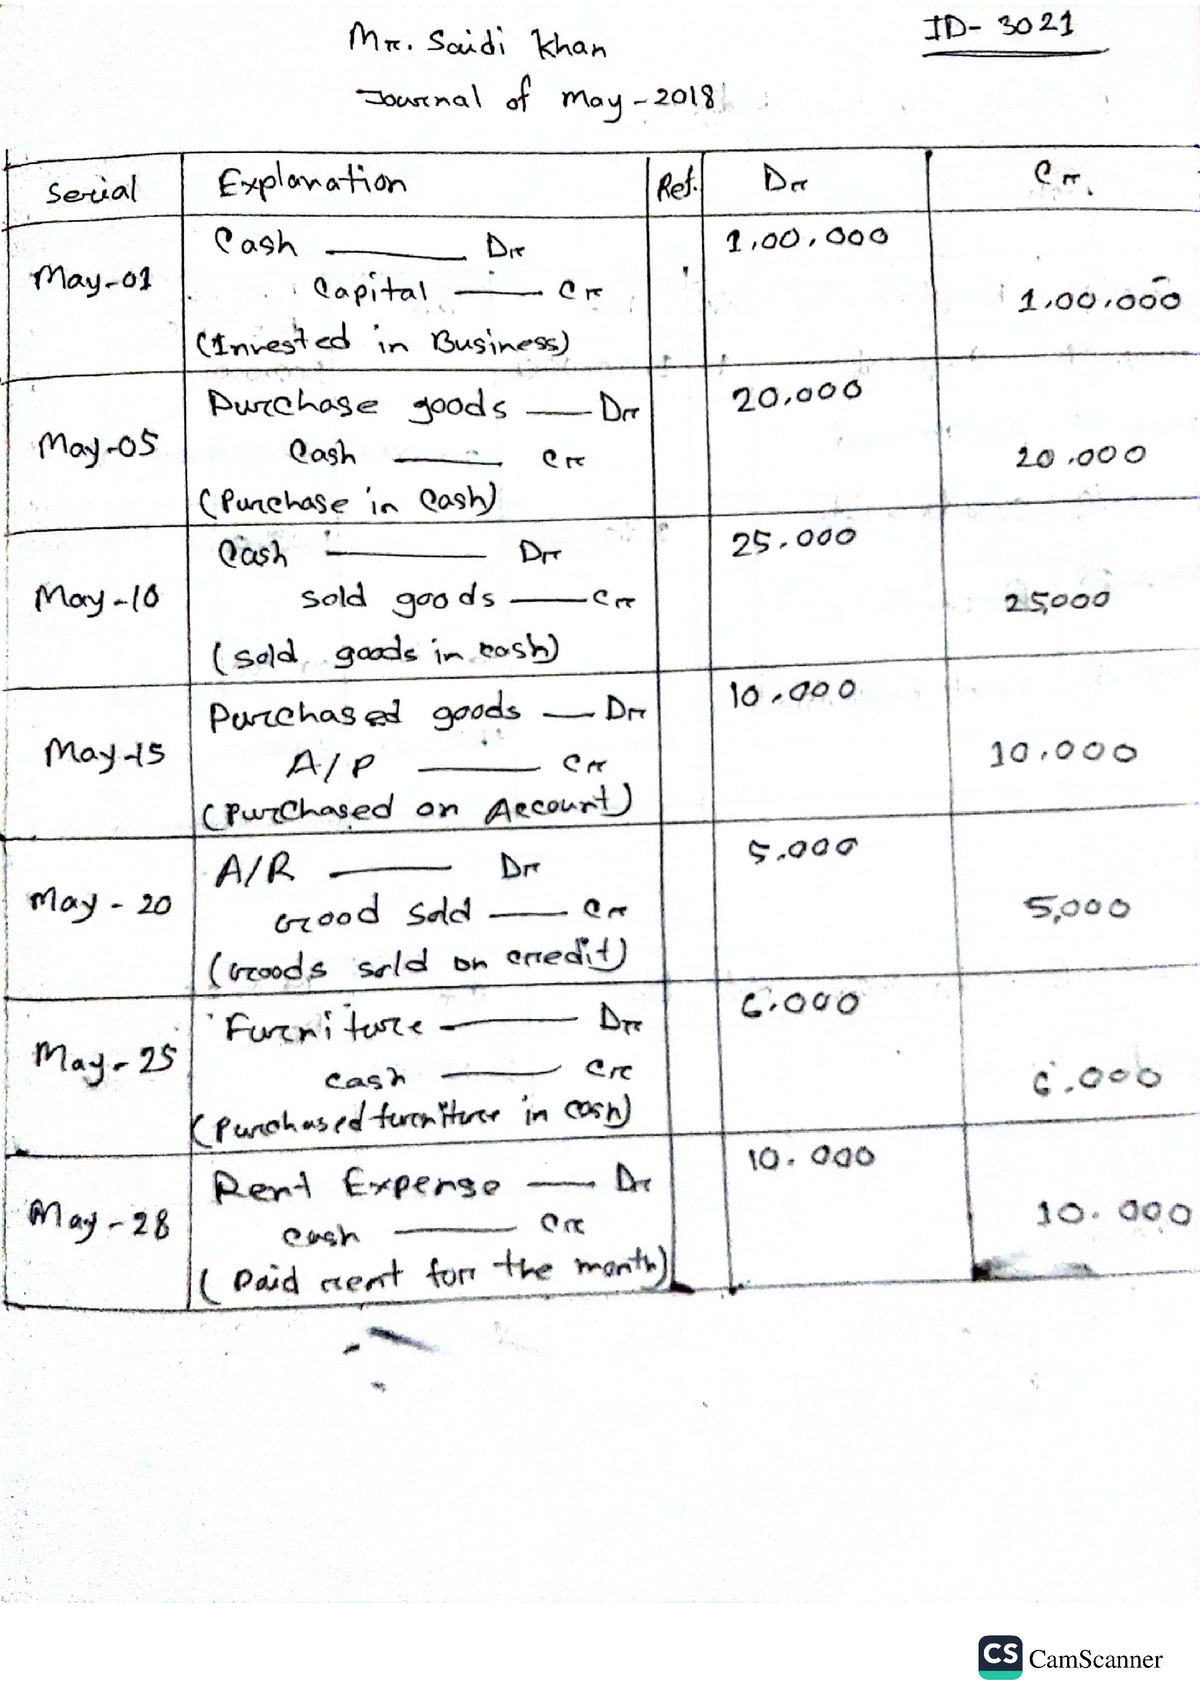 ID- 3021
Mr. Saidi Khan
Journal of May - 2018
Serial Explanation Ref. Dr Cr.
May-01 Cash —— Dr 1,00,000
Capital —— Cr 1,00,000
(Invested in Business)
May-05 Purchase goods —— Dr 20,000
Cash —— Cr 20,000
(Purchase in Cash)
May-10 Cash —— Dr 25,000
Sold goods —— Cr 25,000
(Sold goods in cash)
May-15 Purchased goods —— Dr 10,000
A/P —— Cr 10,000
(Purchased on Account)
May-20 A/R —— Dr 5,000
Good Sold —— Cr 5,000
(Goods sold on credit)
May-25 Furniture —— Dr 6,000
Cash —— Cr 6,000
(Purchased furniture in cash)
May-28 Rent Expense —— Dr 10,000
Cash —— Cr 10,000
(Paid rent for the month)
CS CamScanner